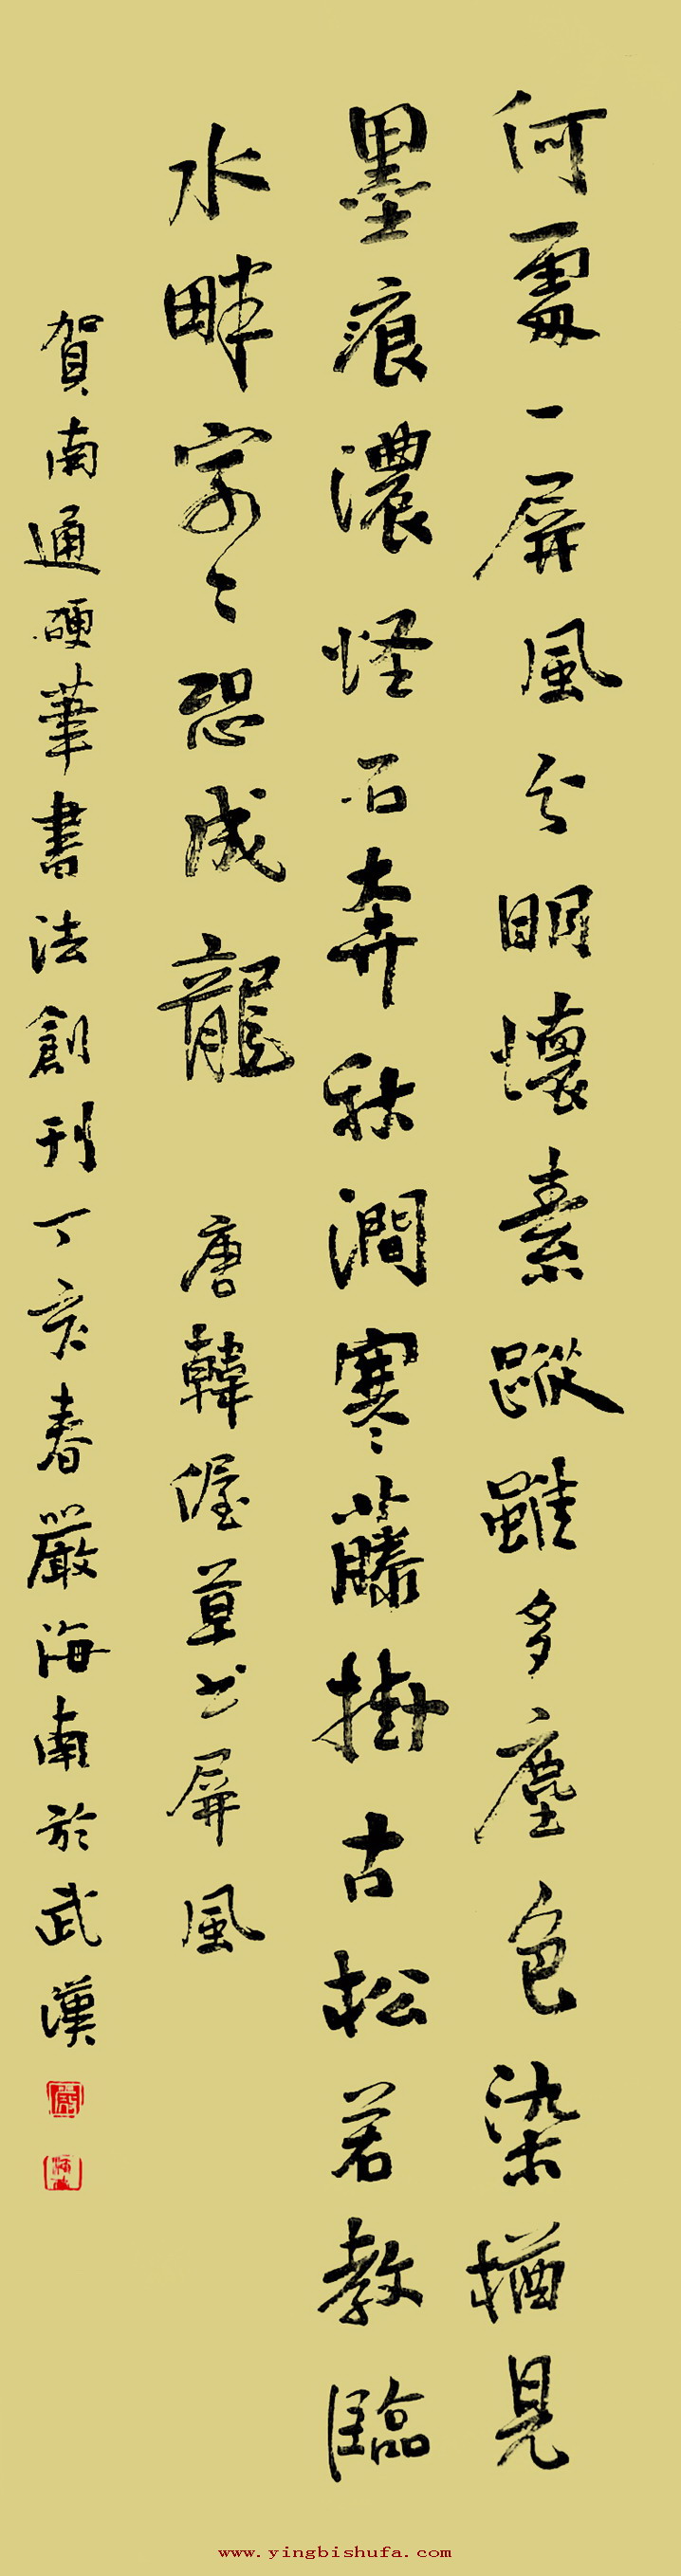 何處一屏風分明懷素蹤雖多塵色染猶見
墨痕濃怪石奔秋澗寒藤掛古松若教臨
水畔字〻恐成龍 唐韓偓草书屏風
賀南通硬筆書法創刊丁亥春嚴海南於武漢
www.yingbishufa.com